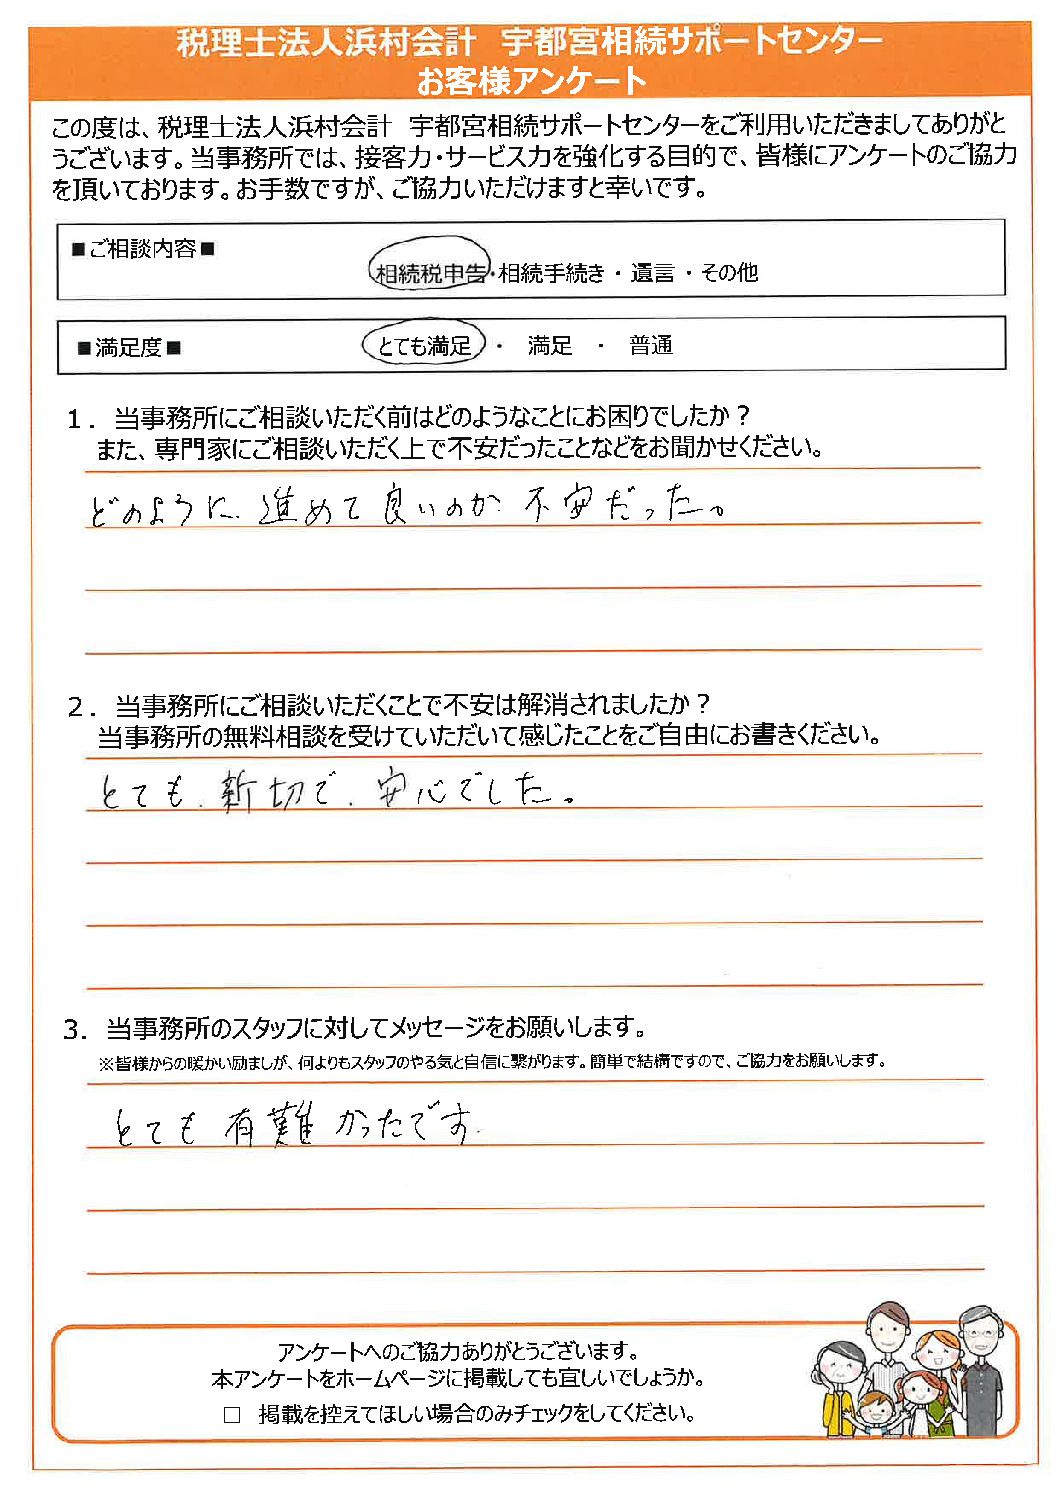 税理士法人浜村会計　宇都宮相続サポートセンター
お客様アンケート
この度は、税理士法人浜村会計　宇都宮相続サポートセンターをご利用いただきましてありがと
うございます。当事務所では、接客力・サービス力を強化する目的で、皆様にアンケートのご協力
を頂いております。お手数ですが、ご協力いただけますと幸いです。
■ご相談内容■
相続税申告・相続手続き・遺言・その他
■満足度■　とても満足・満足・普通
１．当事務所にご相談いただく前はどのようなことにお困りでしたか？
また、専門家にご相談いただく上で不安だったことなどをお聞かせください。
どのように進めて良いのか不安だった。
２．当事務所にご相談いただくことで不安は解消されましたか？
当事務所の無料相談を受けていただいて感じたことをご自由にお書きください。
とても、親切で、安心でした。
３．当事務所のスタッフに対してメッセージをお願いします。
※皆様からの暖かい励ましが、何よりもスタッフのやる気と自信に繋がります。簡単で結構ですので、ご協力をお願いします。
とても有難かったです.
アンケートへのご協力ありがとうございます。
本アンケートをホームページに掲載しても宜しいでしょうか。
□　掲載を控えてほしい場合のみチェックをしてください。